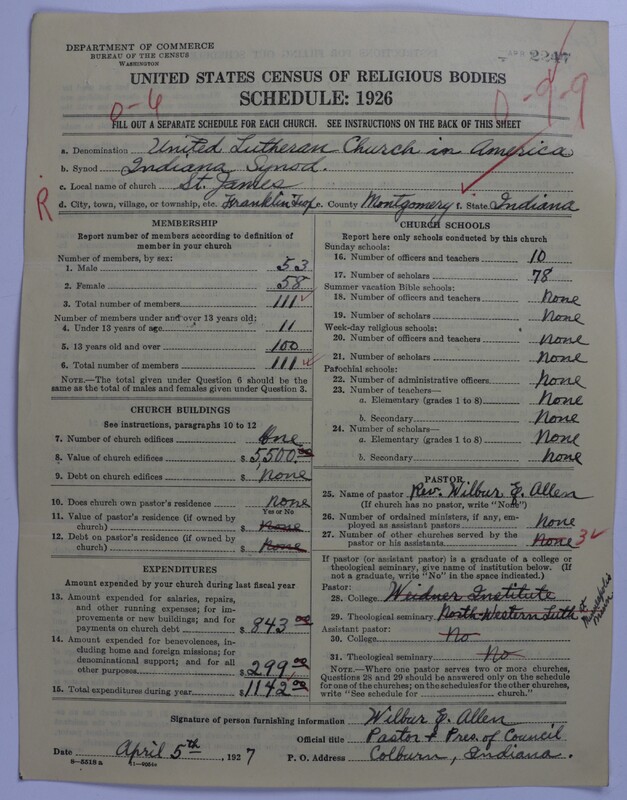 DEPARTMENT OF COMMERCE
BUREAU OF THE CENSUS
WASHINGTON
2247
UNITED STATES CENSUS OF RELIGIOUS BODIES
SCHEDULE: 1926
0-6
0-9-9
FILL OUT A SEPARATE SCHEDULE FOR EACH CHURCH. SEE INSTRUCTIONS ON THE BACK OF THIS SHEET
a. Denomination United Lutheran Church in America
b. Synod Indiana Synod.
c. Local name of church St. James
R
d. City, town, village, or township, etc. Franklin Twp. e. County Montgomery f. State Indiana
MEMBERSHIP
Report number of members according to definition of
member in your church
Number of members, by sex:
1. Male 53
2. Female 58
3. Total number of members 111
Number of members under and over 13 years old:
4. Under 13 years of age 11
5. 13 years old and over 100
6. Total number of members 111
NOTE.—The total given under Question 6 should be the
same as the total of males and females given under Question 3.
CHURCH BUILDINGS
See instructions, paragraphs 10 to 12
7. Number of church edifices One
8. Value of church edifices $ 5,500.00
9. Debt on church edifices $ None
10. Does church own pastor's residence None
Yes or No
11. Value of pastor's residence (if owned by
church) $ None
12. Debt on pastor's residence (if owned by
church) $ None
EXPENDITURES
Amount expended by your church during last fiscal year
13. Amount expended for salaries, repairs,
and other running expenses; for im-
provements or new buildings; and for
payments on church debt $ 843 00
14. Amount expended for benevolences, in-
cluding home and foreign missions; for
denominational support; and for all
other purposes $ 299 00
15. Total expenditures during year $ 1142 00
CHURCH SCHOOLS
Report here only schools conducted by this church
Sunday schools:
16. Number of officers and teachers 10
17. Number of scholars 78
Summer vacation Bible schools:
18. Number of officers and teachers None
19. Number of scholars None
Week-day religious schools:
20. Number of officers and teachers None
21. Number of scholars None
Parochial schools:
22. Number of administrative officers None
23. Number of teachers—
a. Elementary (grades 1 to 8) None
b. Secondary None
24. Number of scholars—
a. Elementary (grades 1 to 8) None
b. Secondary None
PASTOR
25. Name of pastor Rev. Wilbur E. Allen
(If church has no pastor, write "None")
26. Number of ordained ministers, if any, em-
ployed as assistant pastors None
27. Number of other churches served by the
pastor or his assistants None 3
If pastor (or assistant pastor) is a graduate of a college or
theological seminary, give name of institution below. (If
not a graduate, write "No" in the space indicated.)
Pastor:
28. College Weidner Institute
29. Theological seminary North Western Luth of
Minneapolis
Assistant pastor:
30. College No
31. Theological seminary No
NOTE.—Where one pastor serves two or more churches,
Questions 28 and 29 should be answered only on the schedule
for one of the churches; on the schedules for the other churches,
write "See schedule for church."
Signature of person furnishing information Wilbur E. Allen
Official title Pastor + Pres. of Council
Date April 5th, 1927 P. O. Address Colburn, Indiana.
8-5518 a